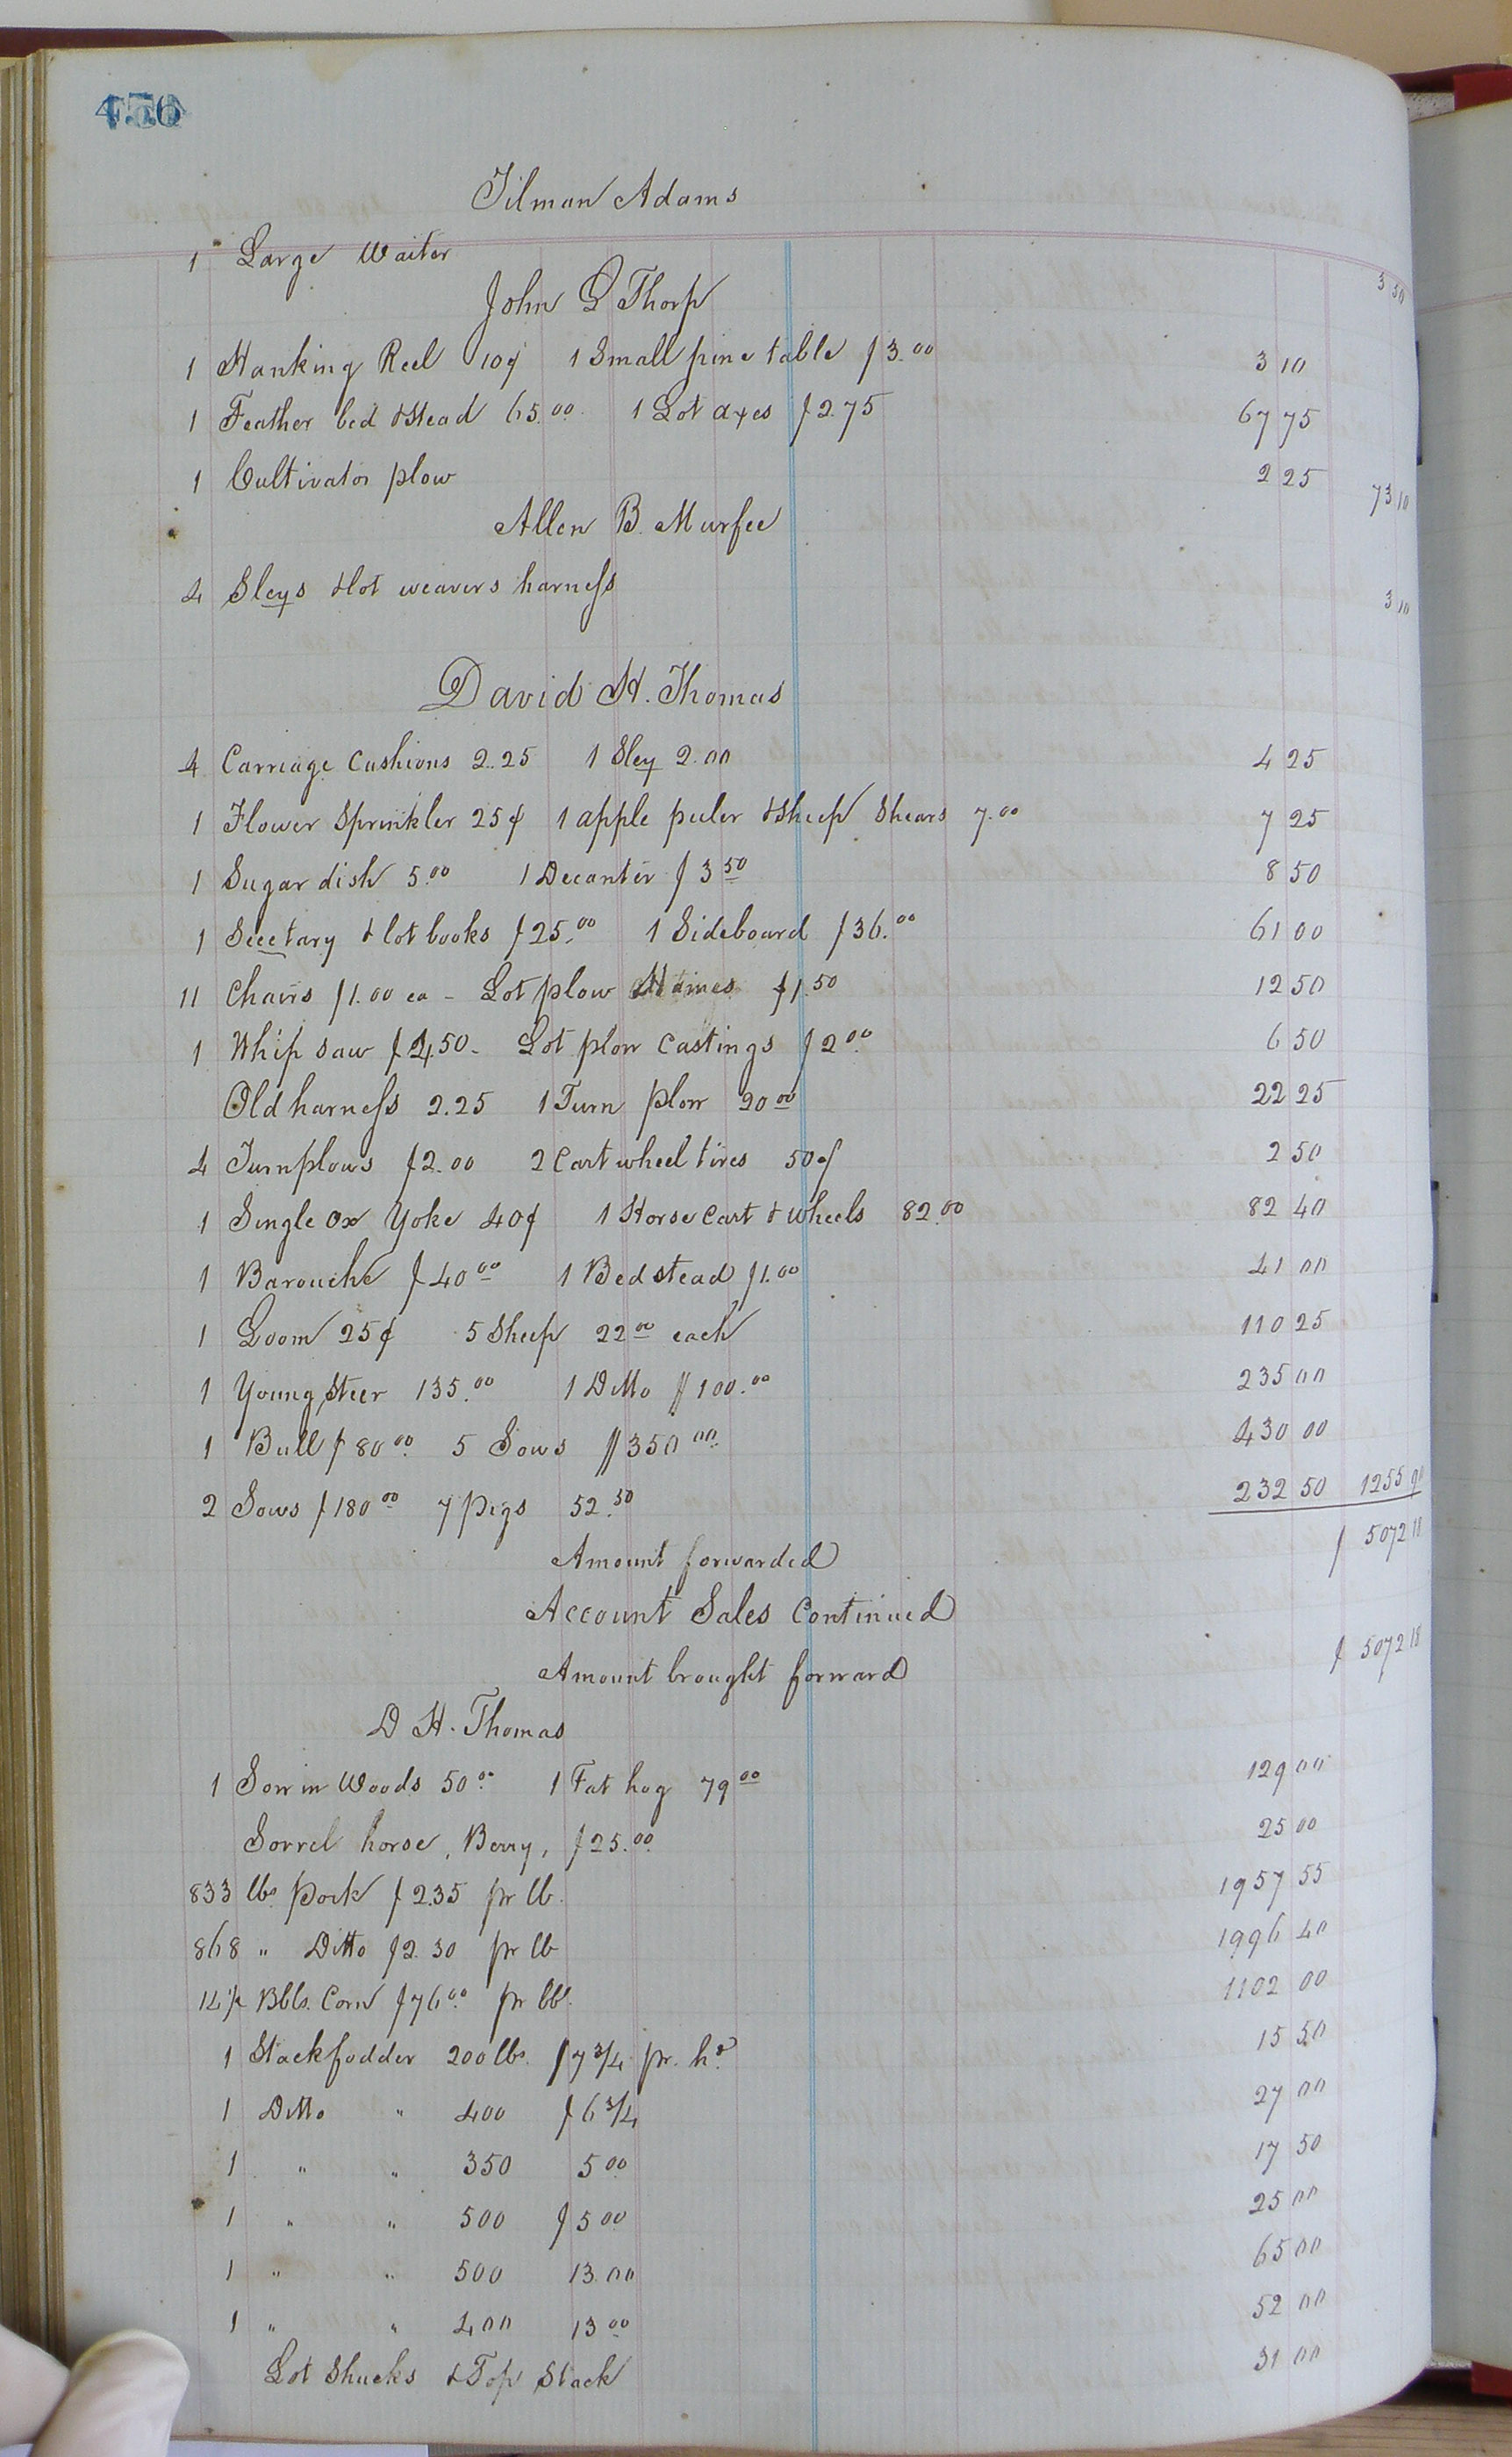 456
Tilman Adams
1 Large Waiter 3 50
John L Thorp
1 Hanking Reel 10¢ 1 Small pine table $3.00 3 10
1 Feather bed & Stead 65.00 1 Lot axes $2.75 67 75
1 Cultivator plow 2 25 73 10
Allen B. Murfee
4 Sleys & lot weavers harness 3 10
David H. Thomas
4 Carriage Cushions 2.25 1 Sley 2.00 4 25
1 Flower Sprinkler 25¢ 1 apple peeler & Sheep Shears 7.00 7 25
1 Sugar dish 5.00 1 Decanter $3 50 8 50
1 Secetary & lot books $25.00 1 Sideboard $36.00 61 00
11 Chairs $1.00 ea - Lot plow Hames $1.50 12 50
1 Whip saw $4.50 - Lot plow Castings $2.00 6 50
Old harness 2.25 1 Turn plow 20 00 22 25
4 Turnplows $2.00 2 Cart wheel tires 50¢ 2 50
1 Single Ox Yoke 40¢ 1 Horse Cart & wheels 82.00 82 40
1 Barouche $40 00 1 Bedstead $1.00 41 00
1 Loom 25¢ 5 Sheep 22 00 each 110 25
1 Young Steer 135.00 1 Ditto $100.00 235 00
1 Bull $80 00 5 Sows $350 00 430 00
2 Sows $180 00 7 Pigs 52.50 232 50 1255 90
Amount forwarded $ 5072 18
Account Sales Continued
Amount brought forward $ 5072 18
D H. Thomas
1 Sow in Woods 50.00 1 Fat hog 79 00 129 00
Sorrel horse, Berry, $25.00 25 00
833 lbs. Pork $2.35 pr lb. 1957 55
868 " Ditto $2.30 pr lb 1996 40
14½ Bbls. Corn $76.00 pr bbl. 1102 00
1 Stack fodder 200 lbs. $7 3/4 pr. hd. 15 50
1 Ditto " 400 $6 3/4 27 00
1 " " 350 5 00 17 50
1 " " 500 $5 00 25 00
1 " " 500 13.00 65 00
1 " " 400 13 00 52 00
Lot Shucks & Top Stack 31 00